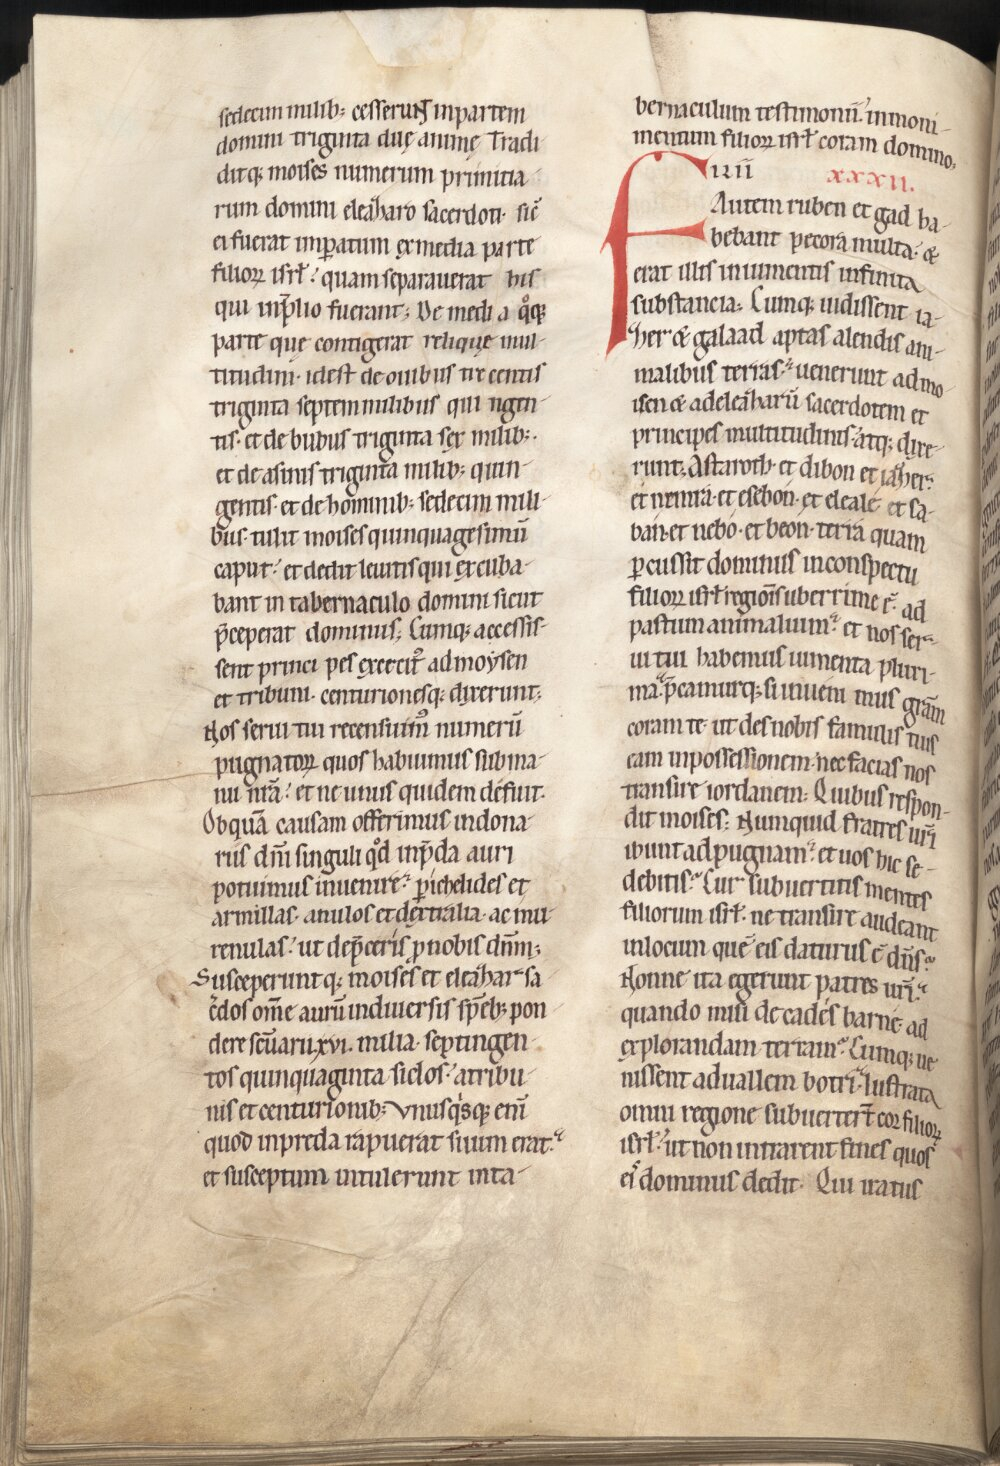 sedecim milib; cesserunt inpartem
domini triginta duę animę Tradi
ditq; moises numerum primitia
rum domini eleaharo sacerdoti· sic̄
ei fuerat imp̲atum ex media parte
filioꝝ isrl̄ quam separauerat his
qui inp̄lio fuerant; De medi a q̊q;
parte que contigerat relique mul
titudini· idest de ouibus tre centis
triginta septem milibus qui ngen
tis· et de bubus triginta sex milib;·
et de asinis triginta milib; quin-
gentis· et de hominib; sedecim mili-
bus· tulit moises quinquagesimū
caput et dedit leuitis qui excuba-
bant in tabernaculo domini sicut
p̄ceperat dominus; Cumq; accessis-
sent princi pes exercit᷒ ad moysen
et tribuni· centurionesq; dixerunt;
Nos serui tui recensuim᷒ numerū
pugnatoꝝ quos habuimus subma-
nu nr̄a et ne unus quidem defuit·
Obquā causam offerimus indona
riis dn̄i singuli qd̊ inp̄da auri
potuimus inuenire p̲ichelides et
armillas· anulos et dextralia· ac mu
renulas ut dep̄ceris p̲ nobis dn̄m;
Susceperuntq; moises et eleahar sa
c̄dos om̄e aurū indiuersis sp̄eb; pon
dere scl̄i aru xvi· milia· septingen
tos quinquaginta siclos atribu
nis et centurionib; Vnusq'sq; enī
quod inpreda rapuerat suum erat
et susceptum intulerunt inta-
bernaculum testimonii inmoni-
mentum filioꝝ isrl̄ coram domino;
F ilii xxxii.
Autem ruben et gad ha-
bebant pecora multa· &
erat illis iniumentis infinita
substancia; Cumq; uidissent ia-
her & galaad aptas alendis ani-
malibus terras uenerunt admo
isen & adeleaharū sacerdotem et
principes multitudinis atq; dixe-
runt; Astaroth· et dibon et iaher
et nemra· et esebon· et eleale· et sa-
ban· et nebo· et beon· terra quam
p̲cussit dominus inconspectu
filioꝝ isrl̄ regionis uberrime ē· ad
pastum animalium et nos ser-
ui tui habemus iumenta pluri-
ma p̄camurq; si inuenimus gr̄am
coram te· ut des nobis famulis tuis
eam inpossessionem· nec facias nos
transire iordanem; Quibus respon-
dit moises; Numquid fratres ur̄i
ibunt adpugnam et uos hic se-
debitis Cur subuertitis mentes
filiorum isrl̄· ne transire audeant
inlocum quē eis daturus ē dn̄s
Nonne ita egerunt patres ur̄i
quando misi de cades barne· ad
explorandam terram Cumq; ue
nissent aduallem botri· lustrata
omni regione subuerter̄t cor filioꝝ
isrl̄ ut non intrarent fines quos
ei᷒ dominus dedit· Qui iratus